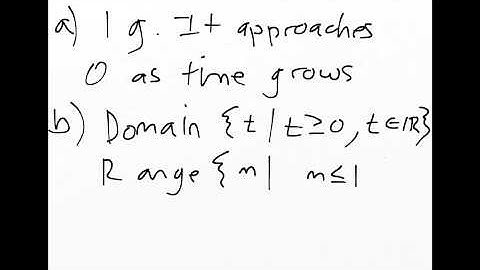 a) 1 g. It approaches
0 as time grows
b) Domain {t | t≥0, t∈ℝ}
Range {m | m≤1